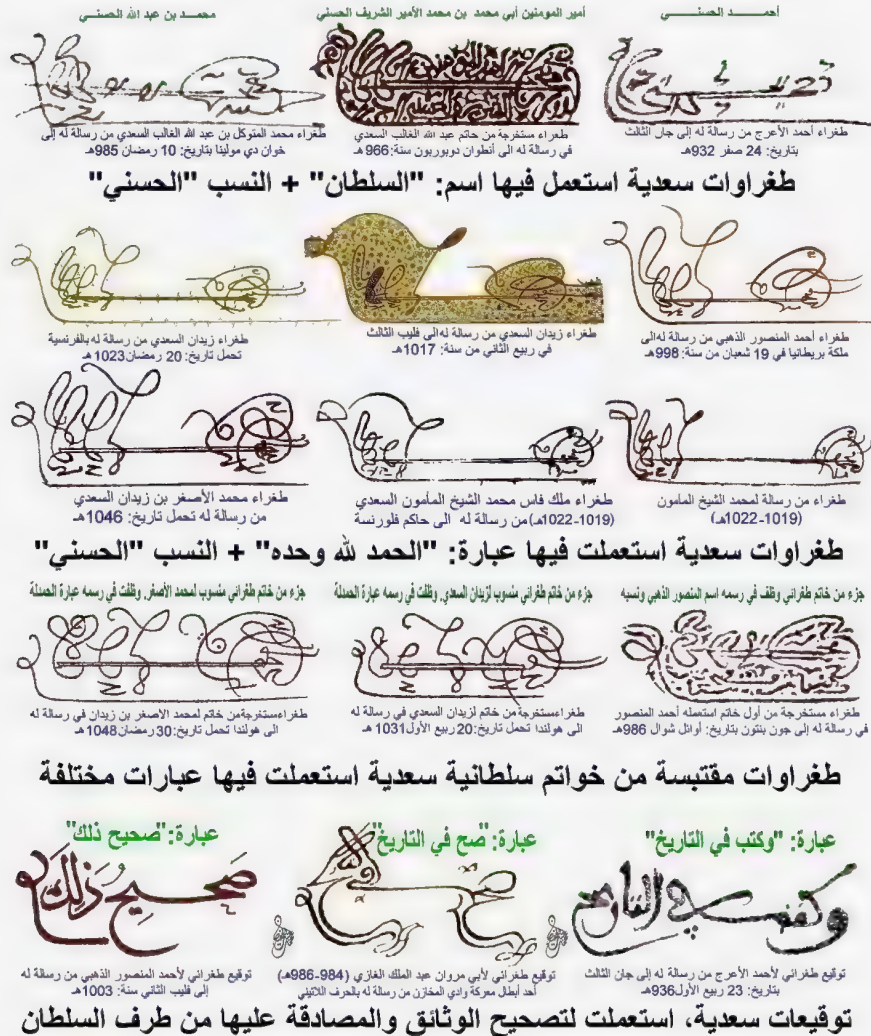 أحمـــــد الحسنـــــي
أمير المومنين أبي محمد بن محمد الأمير الشريف الحسني
محمــد بن عبد الله الحسنــي
طغراء أحمد الأعرج من رسالة له إلى جان الثالث
بتاريخ: 24 صفر 932هـ
طغراء مستخرجة من خاتم عبد الله الغالب السعدي
في رسالة له الى أنطوان دوبوربون سنة: 966هـ
طغراء محمد المتوكل بن عبد الله الغالب السعدي من رسالة له إلى
خوان دي مولينا بتاريخ: 10 رمضان 985هـ
طغراوات سعدية استعمل فيها اسم: "السلطان" + النسب "الحسني"
طغراء أحمد المنصور الذهبي من رسالة له الى
ملكة بريطانيا في 19 شعبان من سنة: 998هـ
طغراء زيدان السعدي من رسالة له الى فليب الثالث
في ربيع الثاني من سنة: 1017هـ
طغراء زيدان السعدي من رسالة له بالفرنسية
تحمل تاريخ: 20 رمضان 1023هـ
طغراء من رسالة لمحمد الشيخ المامون
(1019-1022هـ)
طغراء ملك فاس محمد الشيخ المأمون السعدي
(1019-1022هـ) من رسالة له الى حاكم فلورنسة
طغراء محمد الأصغر بن زيدان السعدي
من رسالة له تحمل تاريخ: 1046هـ
طغراوات سعدية استعملت فيها عبارة: "الحمد لله وحده" + النسب "الحسني"
جزء من خاتم طغراني وظف في رسمه اسم المنصور الذهبي ونسبه
جزء من خاتم طغراني منسوب لزيدان السعدي، وظفت في رسمه عبارة الحمدلة
جزء من خاتم طغراني منسوب لمحمد الأصغر، وظفت في رسمه عبارة الحمدلة
طغراء مستخرجة من أول خاتم استعمله أحمد المنصور
في رسالة له إلى جون بنتون بتاريخ: أوائل شوال 986هـ
طغراء مستخرجة من خاتم لزيدان السعدي في رسالة له
الى هولندا تحمل تاريخ: 20 ربيع الأول 1031هـ
طغراء مستخرجة من خاتم لمحمد الأصغر بن زيدان في رسالة له
الى هولندا تحمل تاريخ: 30 رمضان 1048هـ
طغراوات مقتبسة من خواتم سلطانية سعدية استعملت فيها عبارات مختلفة
عبارة: "وكتب في التاريخ"
عبارة: "صح في التاريخ"
عبارة: "صحيح ذلك"
وكتب في التاريخ
صحيح ذلك
توقيع طغراني لأحمد الأعرج من رسالة له إلى جان الثالث
بتاريخ: 23 ربيع الأول 936هـ
توقيع طغراني لأبي مروان عبد الملك الغازي (984-986هـ)
أحد أبطال معركة وادي المخازن من رسالة له بالحرف اللاتيني
توقيع طغراني لأحمد المنصور الذهبي من رسالة له
إلى فليب الثاني سنة: 1003هـ
توقيعات سعدية، استعملت لتصحيح الوثائق والمصادقة عليها من طرف السلطان